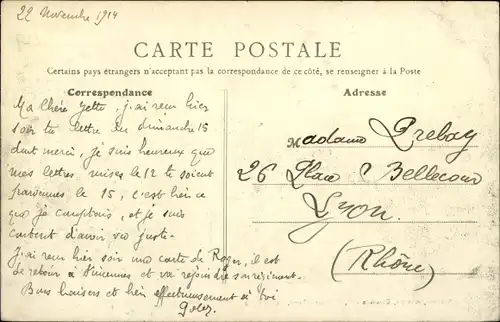 22 Novembre 1914
CARTE POSTALE
Certains pays étrangers n'acceptant pas la correspondance de ce côté, se renseigner à la Poste
Correspondance
Ma Chère Yette, j'ai reçu hier
soir ta lettre du dimanche 15
dont merci, je suis heureux que
mes lettres mises le 12 te soient
parvenues le 15, c'est bien ce
que je comptais, et je suis
content d'avoir vu juste.
J'ai reçu hier soir une carte de Roger, il est
de retour à Vincennes et va rejoindre son régiment.
Bons baisers et bien affectueusement à toi
Adresse
Madame Prebay
26 Place Bellecour
Lyon.
(Rhône)